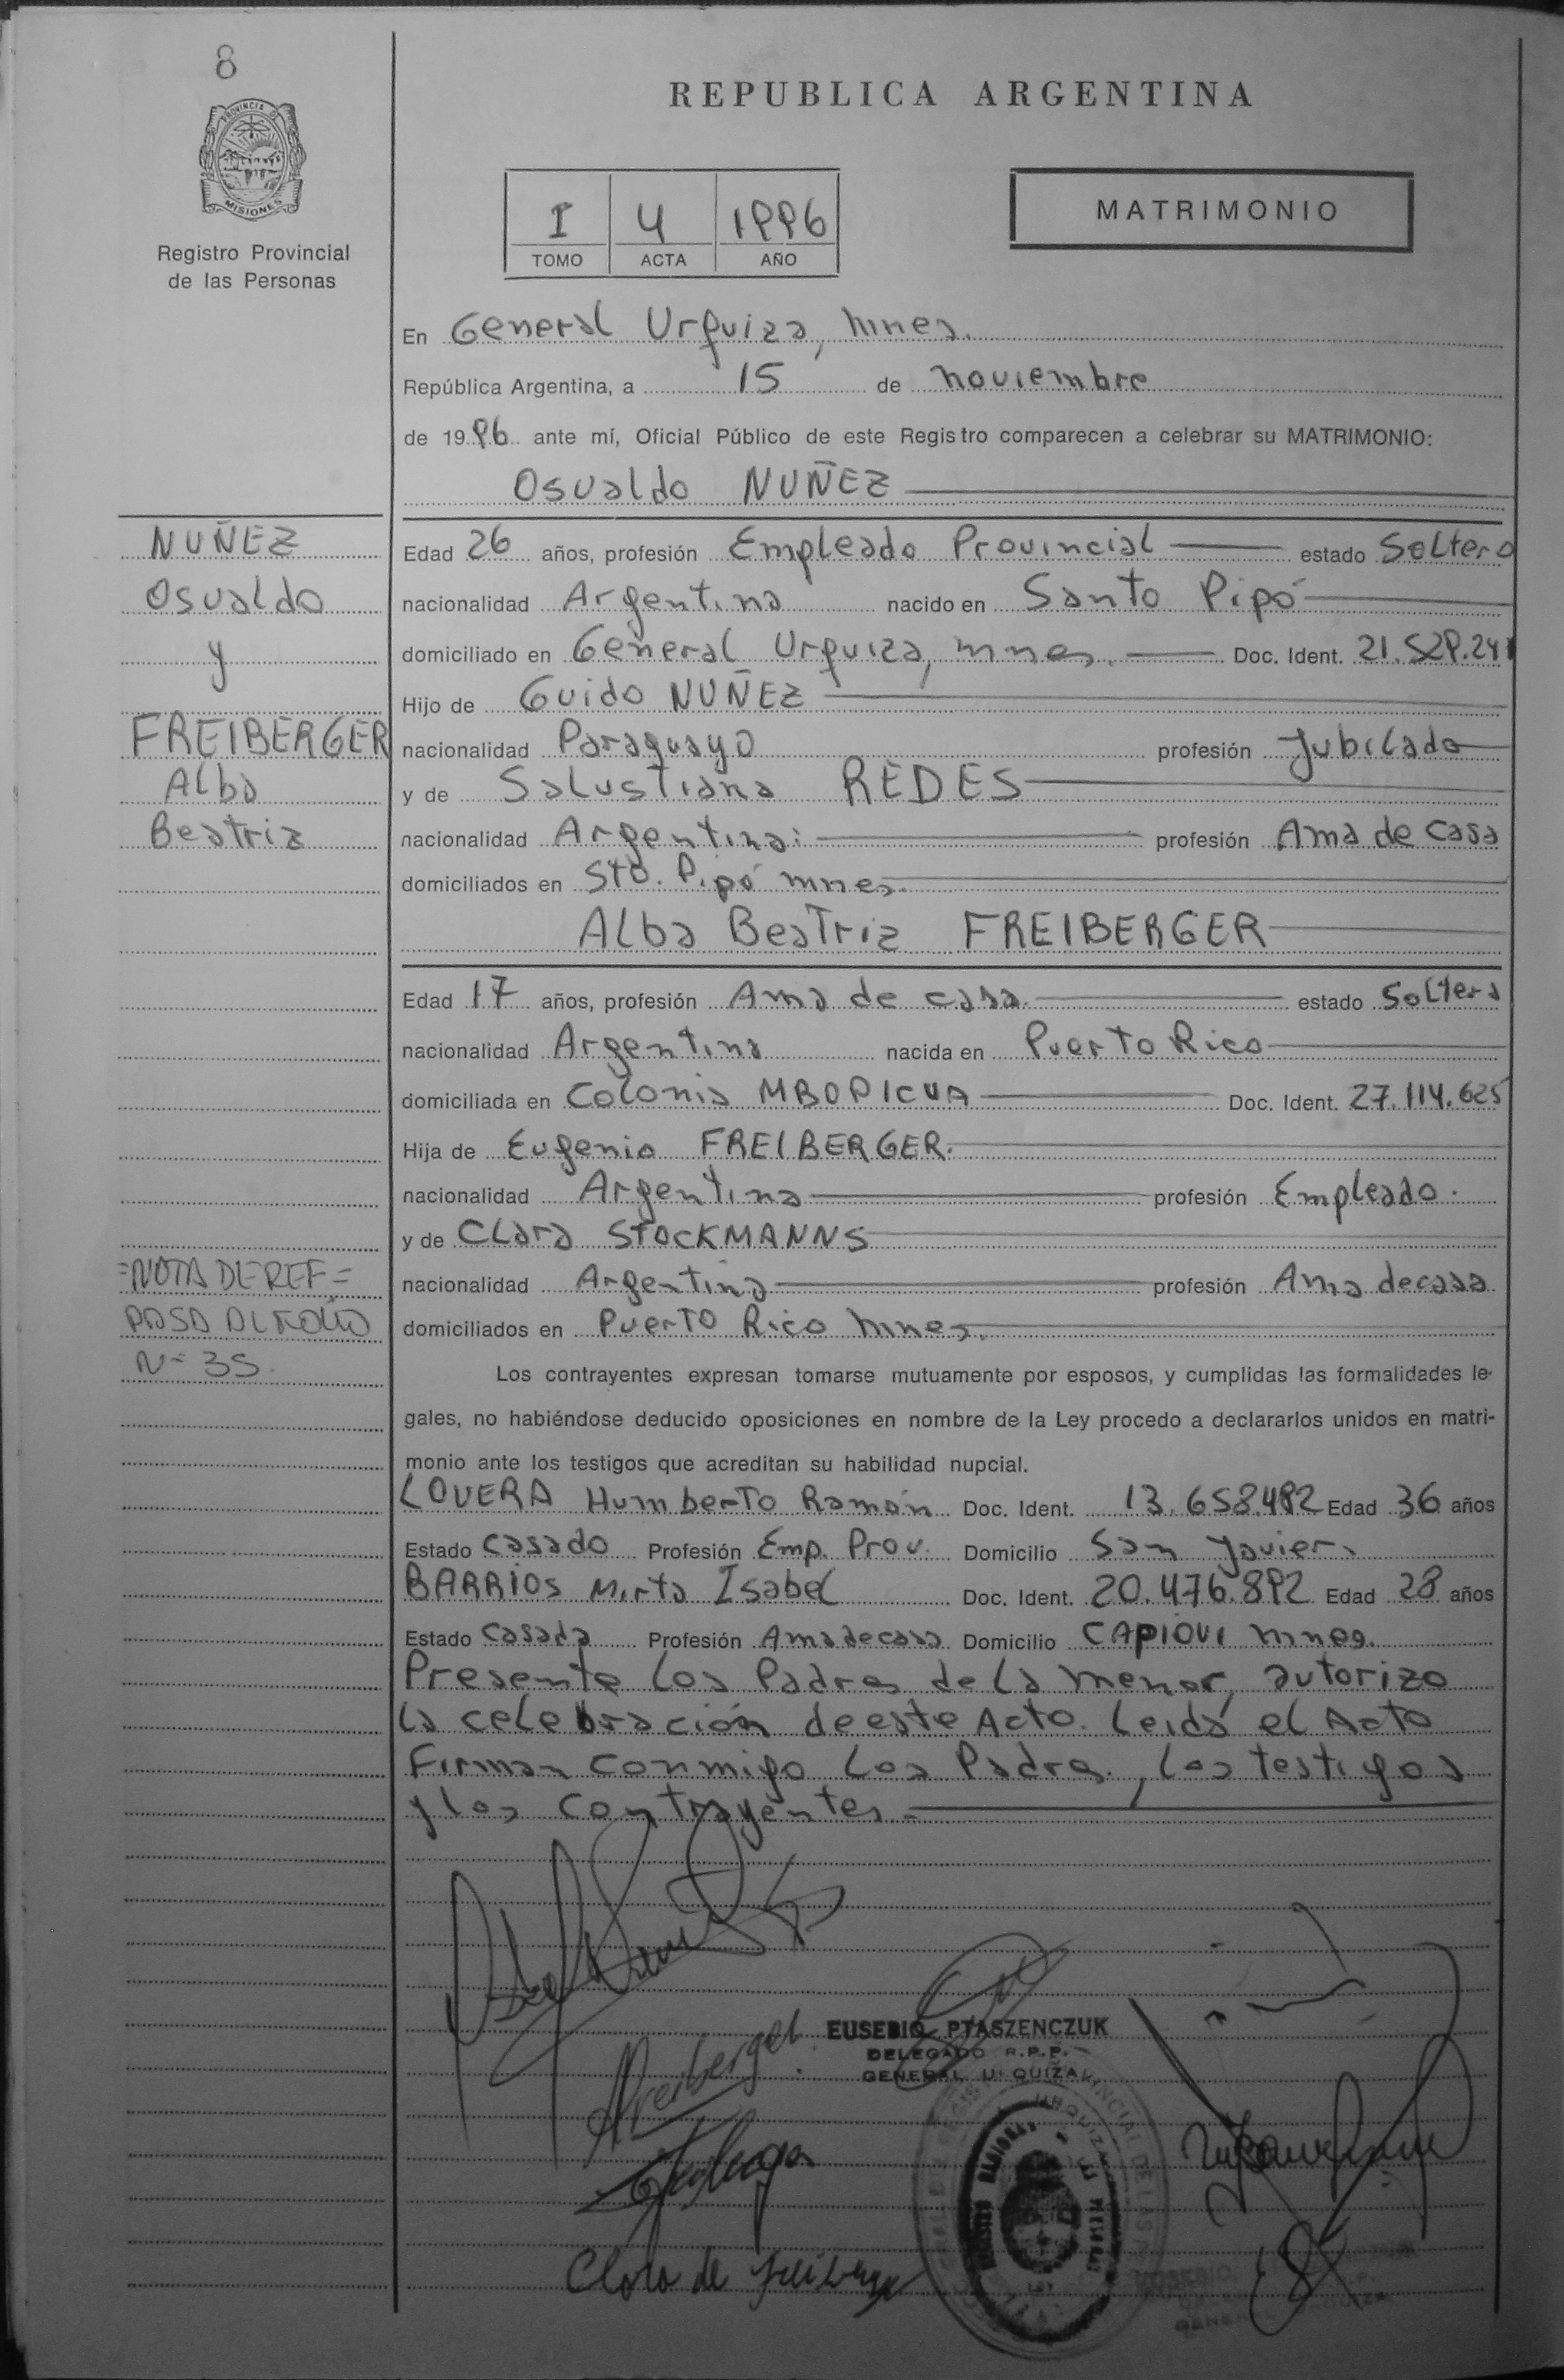 8
REPUBLICA ARGENTINA
PROVINCIA D
MISIONES
Registro Provincial
de las Personas
I 4 1996
TOMO ACTA AÑO
MATRIMONIO
En General Urquiza, Mnes.
República Argentina, a 15 de noviembre
de 1996 ante mí, Oficial Público de este Registro comparecen a celebrar su MATRIMONIO:
Osvaldo NUÑEZ
Edad 26 años, profesión Empleado Provincial estado Soltero
nacionalidad Argentina nacido en Santo Pipó
domiciliado en General Urquiza, mnes. Doc. Ident. 21.529.241
Hijo de Guido NUÑEZ
nacionalidad Paraguayo profesión Jubilado
y de Salustiana REDES
nacionalidad Argentina: profesión Ama de casa
domiciliados en Sto. Pipó mnes.
Alba Beatriz FREIBERGER
Edad 17 años, profesión Ama de casa. estado Soltera
nacionalidad Argentina nacida en Puerto Rico
domiciliada en Colonia MBOPICUA Doc. Ident. 27.114.625
Hija de Eugenio FREIBERGER.
nacionalidad Argentina profesión Empleado.
y de Clara STOCKMANNS
nacionalidad Argentina profesión Ama de casa
domiciliados en Puerto Rico Mnes.
Los contrayentes expresan tomarse mutuamente por esposos, y cumplidas las formalidades le-
gales, no habiéndose deducido oposiciones en nombre de la Ley procedo a declararlos unidos en matri-
monio ante los testigos que acreditan su habilidad nupcial.
LOVERA Humberto Ramón Doc. Ident. 13.658.482 Edad 36 años
Estado casado Profesión Emp. Prov. Domicilio San Javier.
BARRIOS Mirta Isabel Doc. Ident. 20.476.892 Edad 28 años
Estado casada Profesión Ama de casa Domicilio CAPIOVI Mnes.
Presente los Padres de la menor, autorizo
la celebración de este Acto. Leida el Acto
Firman conmigo los Padres, los testigos
y los contrayentes.-
NUÑEZ
Osvaldo
y
FREIBERGER
Alba
Beatriz
=NOTA DE REF=
PASA AL FOLIO
Nº 35.
AFreiberger
EUSEBIO PTASZENCZUK
DELEGADO R.P.P.
GENERAL URQUIZA
Clara de Freiberger